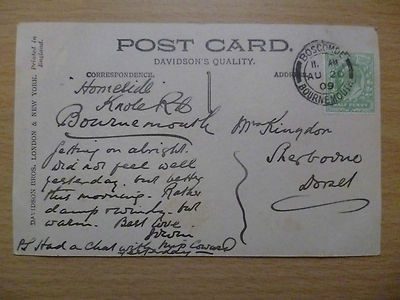 POST CARD.
DAVIDSON'S QUALITY.
CORRESPONDENCE.
ADDRESS
Printed in England.
DAVIDSON BROS. LONDON & NEW YORK.
BOSCOMBE
11. AM
AU 20
09
BOURNEMOUTH
HALF PENNY
Homelide
Knole Rd
Bournemouth
Getting on alright.
Did not feel well
yesterday. but better
this morning. Rather
damp & windy. but
warm. Best love
PS Had a chat with Coward
yesterday
Mr Kingdon
Sherborne
Dorset